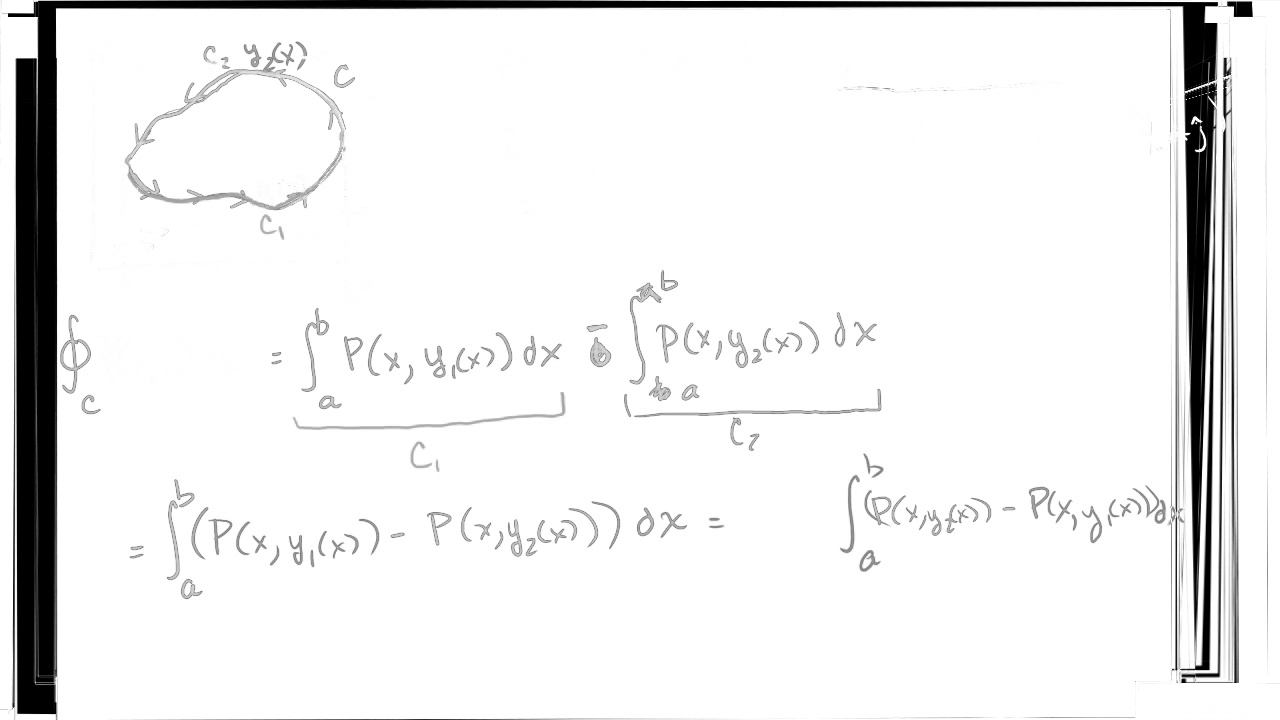 C₂ y₂(x)
C
C₁
+ĵ
∮_C = ∫_a^b P(x, y₁(x)) dx - ∫_a^b P(x, y₂(x)) dx
C₁ C₂
= ∫_a^b (P(x, y₁(x)) - P(x, y₂(x))) dx = ∫_a^b (P(x, y₂(x)) - P(x, y₁(x))) dx